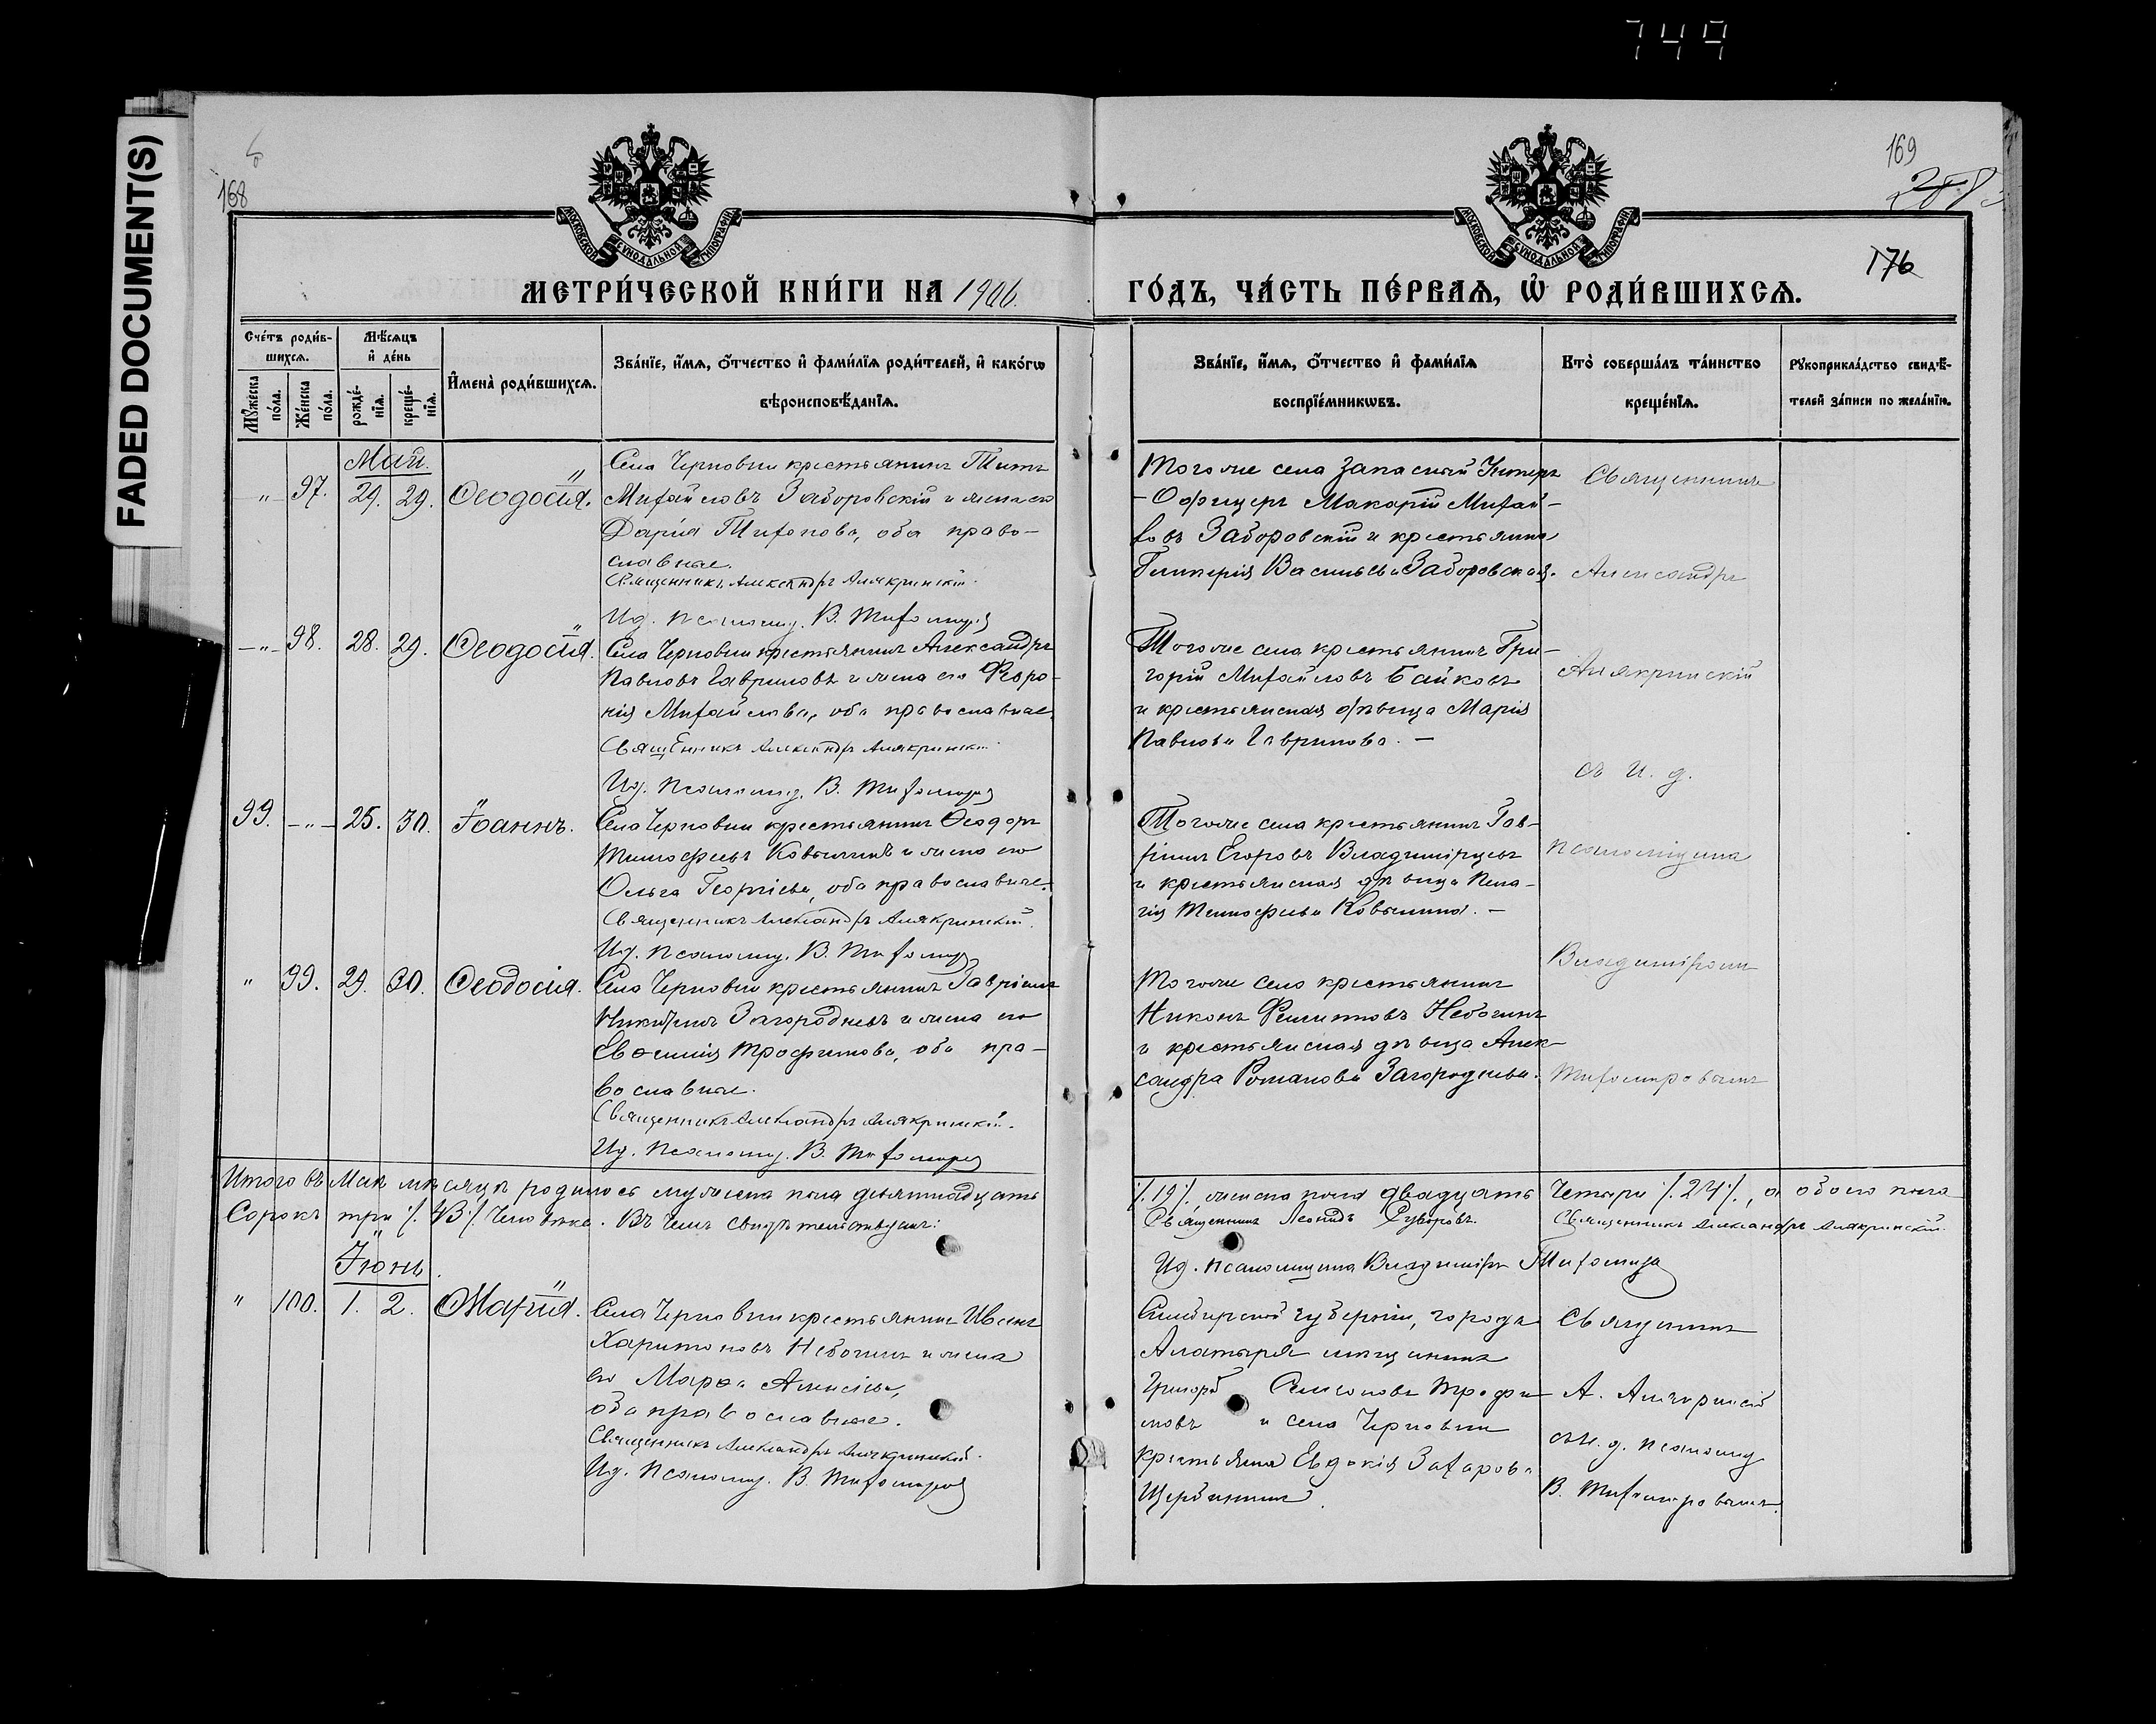 749
FADED DOCUMENT(S)
168
169
176
МОСКОВСКОЙ СѴНОДАЛЬНОЙ ТИПОГРАФІИ
МОСКОВСКОЙ СѴНОДАЛЬНОЙ ТИПОГРАФІИ
МЕТРИ́ЧЕСКОЙ КНИ́ГИ НА 1906.
ГО́ДЪ, ЧА́СТЬ ПЕ́РВАѦ, Ѡ҆ РОДИ́ВШИХСѦ.
Сче́тъ роди́в-
шихсѧ.
Мꙋ́жеска по́ла.
Же́нска по́ла.
Мѣ́сѧцъ
и҆ де́нь
рожде́-нїѧ.
креще́-нїѧ.
И҆мена̀ роди́вшихсѧ.
Зва́нїе, и҆́мѧ, ѻ҆́тчество и҆ фами́лїѧ роди́телей, и҆ како́гѡ
вѣроисповѣ́данїѧ.
Зва́нїе, и҆́мѧ, ѻ҆́тчество и҆ фами́лїѧ
воспрїе́мникѡвъ.
Кто̀ соверша́лъ та́инство
креще́нїѧ.
Рꙋкоприкла́дство свидѣ́-
телей за́писи по жела́нїю.
Май.
-„- 97. 29. 29. Ѳеодосія.
Села Черновки крестьянинъ Титъ
Михайловъ Заборовскій и жена его
Дарія Тихонова, оба право-
славные.
Священникъ Александръ Алякринскій.
Ид. псаломщ. В. Тихомировъ
Тогоже села запасный Унтеръ
-Офицеръ Макарій Михай-
ловъ Заборовскій и крестьянка
Гликерія Васильева Заборовская.
Священникъ
Александръ
Алякринскій
съ и. д.
псаломщика
Владиміромъ
Тихомировымъ
-„- 98. 28. 29. Ѳеодосія.
Села Черновки крестьянинъ Александръ
Павловъ Гавриловъ и жена его Февро-
нія Михайлова, оба православные.
Священникъ Александръ Алякринскій.
Ид. псаломщ. В. Тихомировъ
Тогоже села крестьянинъ Гри-
горій Михайловъ Байковъ
и крестьянская дѣвица Марія
Павлова Гаврилова. -
99. -„- 25. 30. Іоаннъ.
Села Черновки крестьянинъ Ѳеодоръ
Тимофеевъ Ковылинъ и жена его
Ольга Георгіева, оба православные.
Священникъ Александръ Алякринскій.
Ид. псаломщ. В. Тихомировъ
Тогоже села крестьянинъ Гав-
ріилъ Егоровъ Владимірцевъ
и крестьянская дѣвица Пела-
гія Тимофеева Ковылина. -
„ 99. 29. 30. Ѳеодосія.
Села Черновки крестьянинъ Гавріилъ
Никитинъ Загородневъ и жена его
Евѳимія Трофимова, оба пра-
вославные.
Священникъ Александръ Алякринскій.
Ид. псаломщ. В. Тихомировъ
Тогоже села крестьянинъ
Никонъ Филипповъ Небогинъ
и крестьянская дѣвица Алек-
сандра Романова Загороднева.
Итого въ Маѣ мѣсяцѣ родилось мужеска пола девятнадцать
/.19/. женска пола двадцать Четыре /.24/., а обоего пола
Сорокъ три /.43/. Человѣка. Въ чемъ свидѣтельствуемъ:
Священникъ Леонидъ Суворовъ.
Священникъ Александръ Алякринскій.
Ид. псаломщика Владиміръ Тихомировъ
Іюнь.
„ 100. 1. 2. Марія.
Села Черновки крестьянинъ Иванъ
Харитоновъ Небогинъ и жена
его Марѳа Алексіева,
оба православные.
Священникъ Александръ Алякринскій.
Ид. псаломщ. В. Тихомировъ
Симбирской губерніи, города
Алатыря мѣщанинъ
Григорій Самсоновъ Трофи-
мовъ и села Черновки
крестьянка Евдокія Захарова
Щербинина.
Священникъ
А. Алякринскій
съ и. д. псаломщ
В. Тихомировымъ.